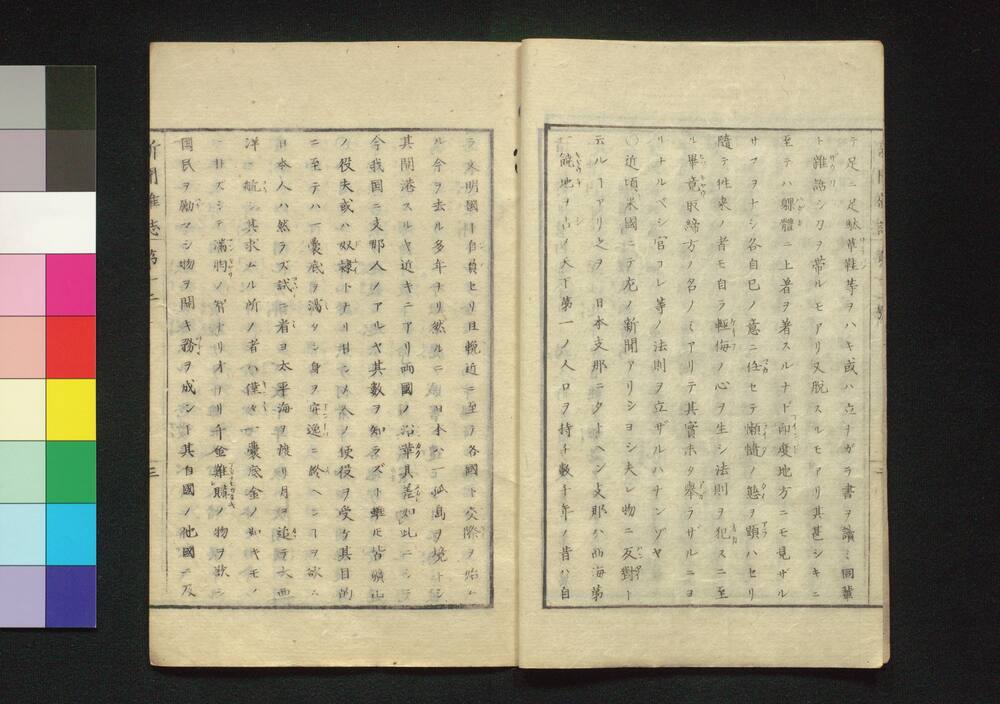 テ足ニ足駄草鞋等ヲハキ或ハ立ナガラ書ヲ讀ミ同輩
ト雜話シ刀ヲ帶ルモアリ又脱スルモアリ其甚シキニ
至テハ躶體ニ上着ヲ著スルナド印度地方ニモ見ザル
サマヲナシ各自己ノ意ニ任セテ懶惰ノ態ヲ顕ハセリ
隨テ徃来ノ者モ自ラ輕侮ノ心ヲ生シ法則ヲ犯スニ至
ル畢竟取締方ノ名ノミアリテ其實ホタ舉ラザルニヨ
リナルベシ官コレ等ノ法則ヲ立ザルハナンゾヤ
〇近頃米國ニテ左ノ新聞アリシヨシ夫レ物ニ反對ト
云ルヿアリ之ヲ日本支那ニタトヘン支那ハ西海第
一饒地ヲ占メ天下第一ノ人口ヲ持チ數千年ノ昔ハ自
ラ文明國ト自負セリ且輓近ニ至ラ各國ト交際ヲ始ム
ル今ヲ去ル多年ナリ然ルニ日本ハ一孤島ヲ境トシ
其開港スルヤ近キニアリ両國ノ沿革其差如此ニシテ
今我国ニ支那人ノアルヤ其數ヲ知ラズト雖モ皆礦山
ノ役夫或ハ奴隷トナリ甘シメ人ノ使役ヲ受ケ其目的
ニ至テハ一嚢底ヲ満タシ身ヲ安逸ニ終ヘンヿヲ欲ス
日本人ハ然ラズ試ニ看ヨ太平海ヲ渡リ月ヲ追テ大西
洋ニ航シ其求ムル所ノ者ハ僅々嚢底金ノ如キモノ
ニ非ズシテ滿胸ノ智ナリ才ナリ千金難購ノ物ヲ欲シ
國民ヲ勵マシ物ヲ開キ務ヲ成シ其自國ノ他國ニ及
新聞雜誌 第十二
三